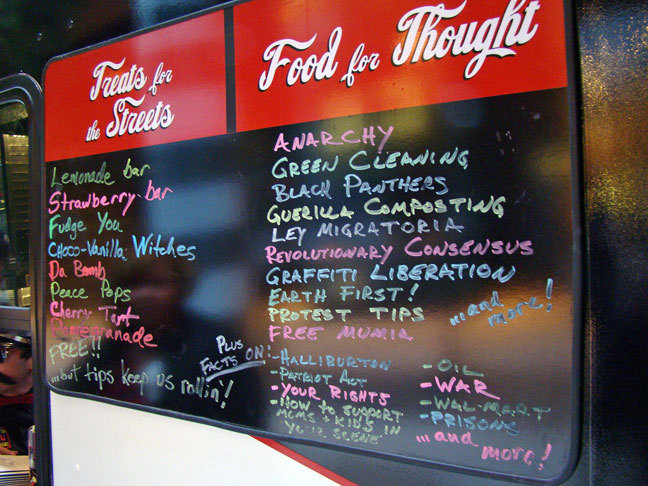 Treats for
the Streets
Lemonade bar
Strawberry bar
Fudge You
Choco-Vanilla Witches
Da Bomb
Peace Pops
Cherry Tart
Pomegranade
FREE!!
...but tips keep us rollin'!
Food for Thought
ANARCHY
GREEN CLEANING
BLACK PANTHERS
GUERILLA COMPOSTING
LEY MIGRATORIA
REVOLUTIONARY CONSENSUS
GRAFFITI LIBERATION
EARTH FIRST!
PROTEST TIPS
FREE MUMIA
...and more!
PLUS
FACTS ON!
-HALLIBURTON
-PATRIOT ACT
-YOUR RIGHTS
-HOW TO SUPPORT
MOMS + KIDS IN
YOUR SCENE
-OIL
-WAR
-WAL-MART
-PRISONS
...and more!